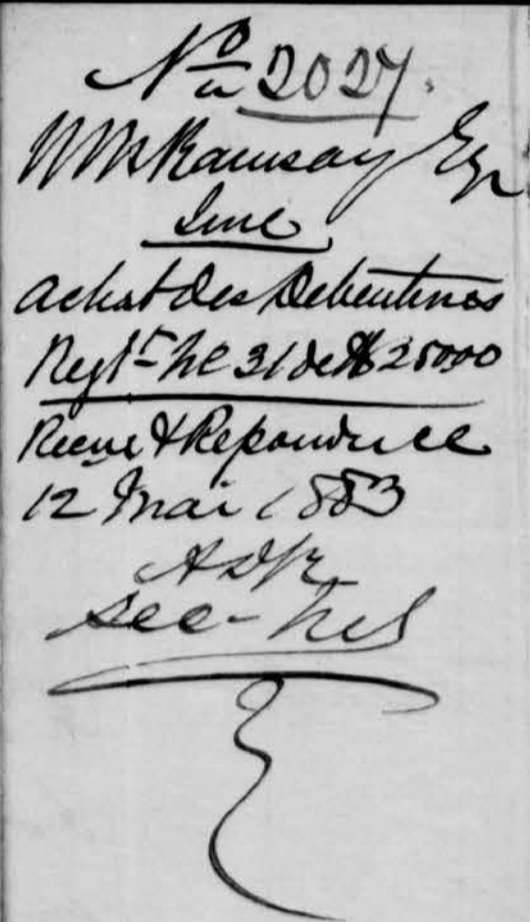 No 2027.
W M Ramsay Esqr
Achat des Debentures
Reglt No 31 de $25000
Recue & Repondue le
12 Mai 1883
Sec-Tres